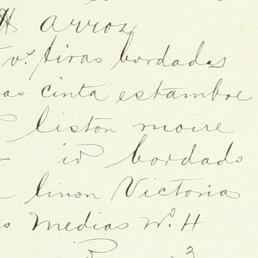 Arroz
vs. tiras bordadas
as cinta estambre
liston moire
" id bordado
linon Victoria
s Medias No. H